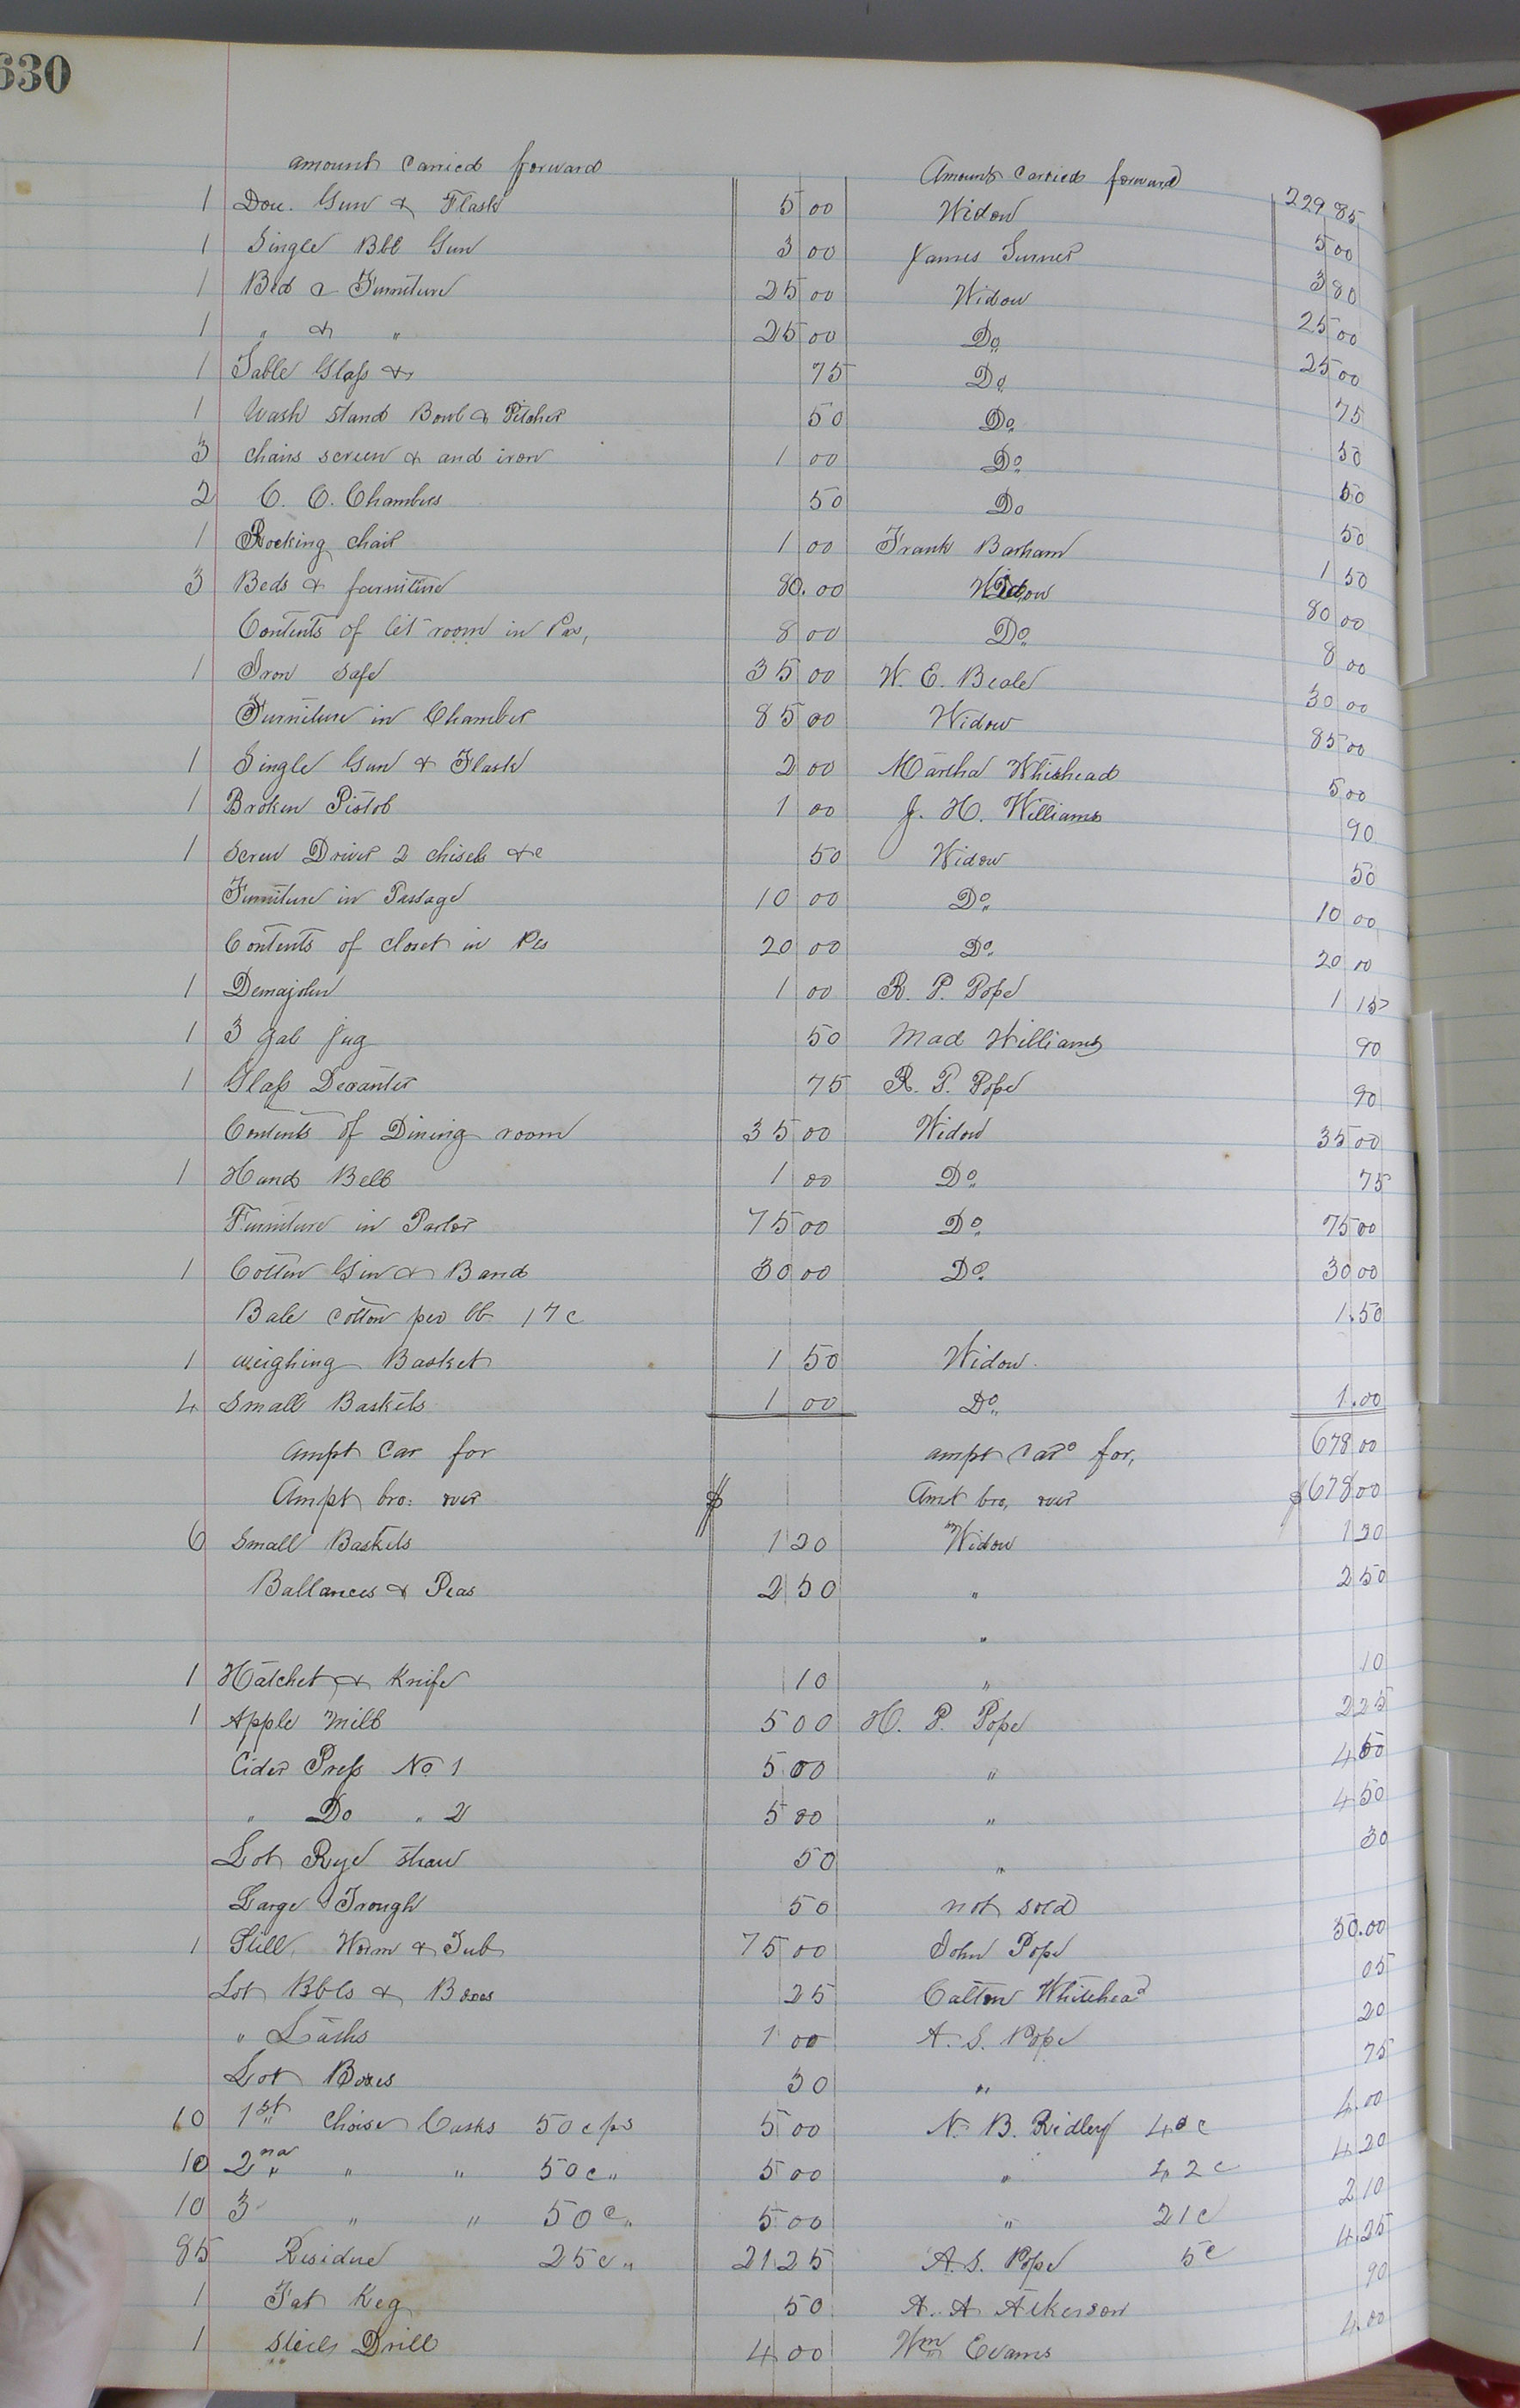 630
amount carried forward Amount carried forward 229 85
1 Dou. Gun & Flask 5 00 Widow 5 00
1 Single Bbl Gun 3 00 James Turner 3 80
1 Bed & Furniture 25 00 Widow 25 00
1 " & " 25 00 Do 25 00
1 Table Glass & 75 Do 75
1 Wash stand Bowl & Pitcher 50 Do 50
3 chairs screen & and iron 1 00 Do 50
2 C. C. Chambers 50 Do 50
1 Rocking chair 1 00 Frank Barham 1 50
3 Beds & furniture 80.00 Widow 80 00
Contents of lit room in Pas, 8 00 Do 8 00
1 Iron Safe 35 00 W. E. Beale 30 00
Furniture in Chamber 85 00 Widow 85 00
1 Single Gun & Flask 2 00 Martha Whitehead 5 00
1 Broken Pistol 1 00 J. H. Williams 90
1 Screw Driver 2 chisels &c 50 Widow 50
Furniture in Passage 10 00 Do 10 00
Contents of closet in Pas 20 00 Do 20 00
1 Demajohn 1 00 R. P. Pope 1 15
1 3 gal Jug 50 Mad Williams 90
1 Glass Decanter 75 R. P. Pope 90
Contents of Dining room 35 00 Widow 35 00
1 Hand Bell 1 00 Do 75
Furniture in Parlor 75 00 Do 75 00
1 Cotton Gin & Band 30 00 Do 30 00
Bale Cotton per lb 17 c 1.50
1 weighing Basket 1 50 Widow
4 Small Baskets 1 00 Do 1.00
Ampt Car for ampt Card for, 678 00
Ampt bro: over $ Amt bro, over $678 00
6 Small Baskets 1 20 Widow 1 20
Ballances & Peas 2 50 " 2 50
"
1 Hatchet & Knife 10 " 10
1 Apple Mill 5 00 H. P. Pope 2 25
Cider Press No 1 5 00 " 4 50
" Do " 2 5 00 " 4 50
Lot Rye straw 50 " 30
Large Trough 50 not sold
1 Still, Worm & Tub 75 00 John Pope 50.00
Lot Bbls & Boxes 25 Calton Whitehead 05
" Laths 1 00 A. S. Pope 20
Lot Boxes 30 " 75
10 1st " Choise Casks 50 c ps 5 00 N. B. Ridley 40 c 4.00
10 2nd " " " 50 c " 5 00 " 42 c 4 20
10 3 " " 50 c " 5 00 " 21 c 2 10
85 Residue 25 c " 21 25 A. S. Pope 5 c 4 25
1 Fat Keg 50 A. A. Atkerson 90
1 Drill 4 00 Wm Evans 4.00